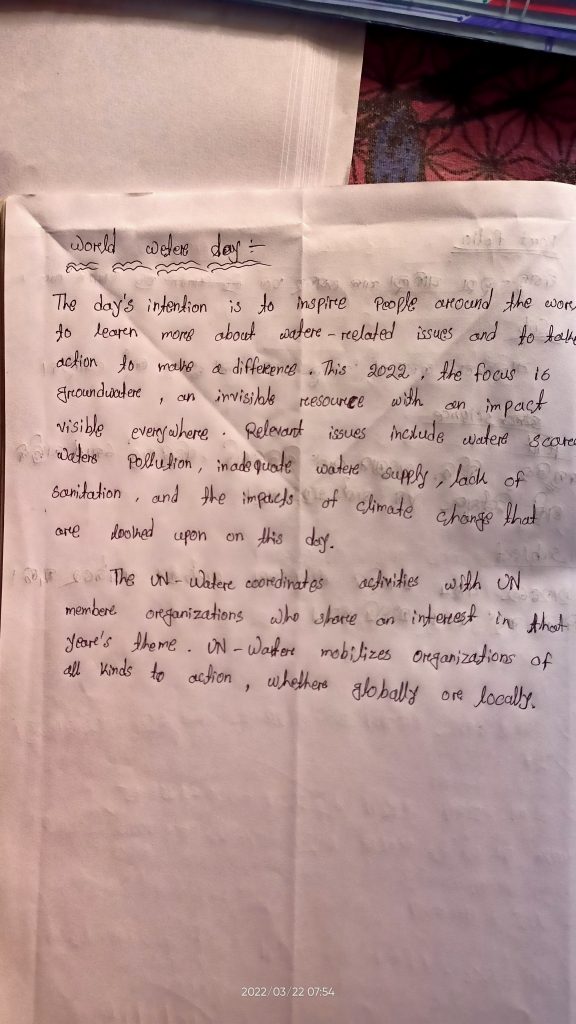 World water day :-
The day's intention is to inspire People around the wor
to learn more about water-related issues and to take
action to make a difference. This 2022, the focus is
groundwater, an invisible resource with an impact
visible everywhere. Relevant issues include water scarc
water Pollution, inadequate water supply, lack of
sanitation, and the impacts of climate change that
are looked upon on this day.
The UN-Water coordinates activities with UN
member organizations who share an interest in that
year's theme. UN-Water mobilizes organizations of
all kinds to action, whether globally or locally.
2022/03/22 07:54